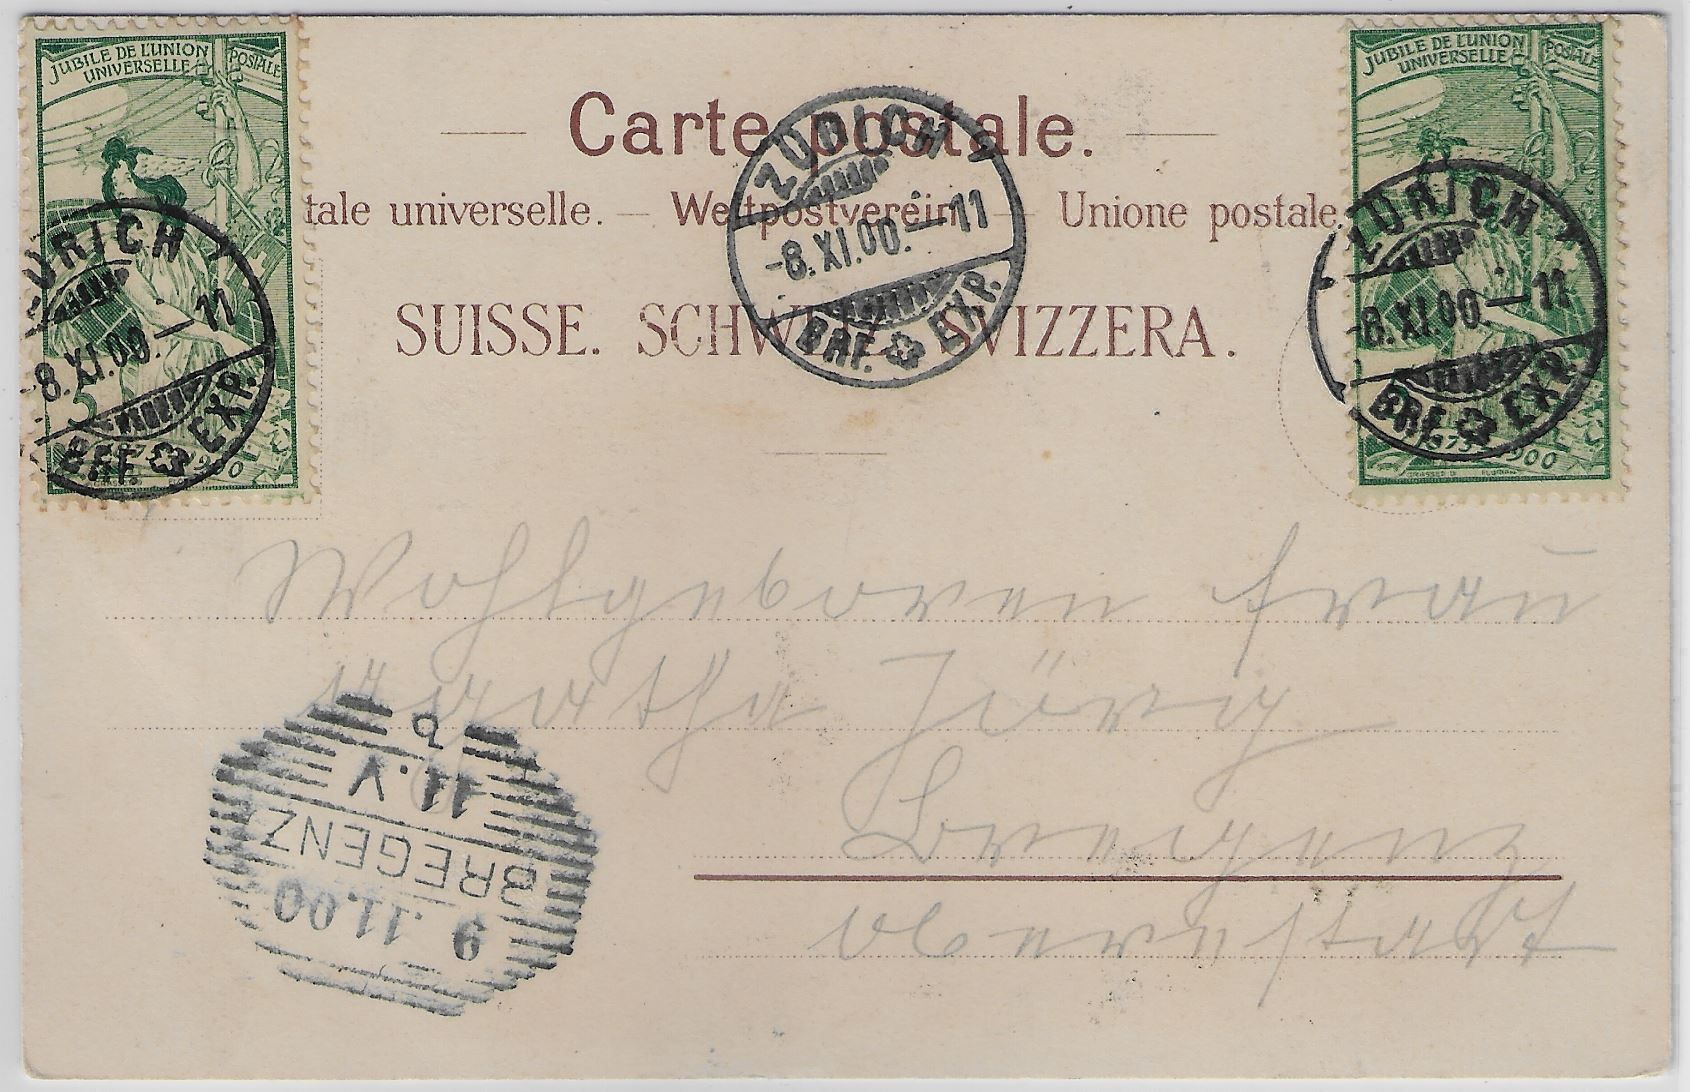 JUBILÉ DE L'UNION
UNIVERSELLE POSTALE
5
1875-1900
ZÜRICH
-8.XI.00.-11
BRF. EXP.
Carte postale.
tale universelle. — Weltpostverein — Unione postale.
SUISSE. SCHWEIZ. SVIZZERA.
ZÜRICH
-8.XI.00.-11
BRF. EXP.
JUBILÉ DE L'UNION
UNIVERSELLE POSTALE
1875-1900
ZÜRICH
-8.XI.00.-11
BRF. EXP.
Wohlgeboren Frau
Agatha Jürg
Bregenz
Oberestadt
BREGENZ
9.11.00
11.V